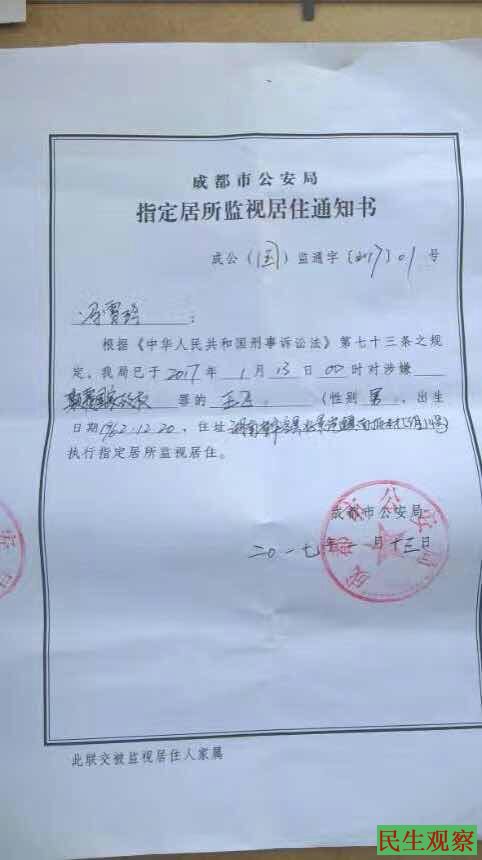 成都市公安局
指定居所监视居住通知书
成公（国）监通字〔2017〕01号
冯 ：
根据《中华人民共和国刑事诉讼法》第七十三条之规
定，我局已于2017年1月13日00时对涉嫌
颠覆国家政权罪的 王 （性别男，出生
日期1962.12.20，住址湖南省
执行指定居所监视居住。
成都市公安局
二〇一七年一月十三日
成都市公安局
此联交被监视居住人家属
民生观察